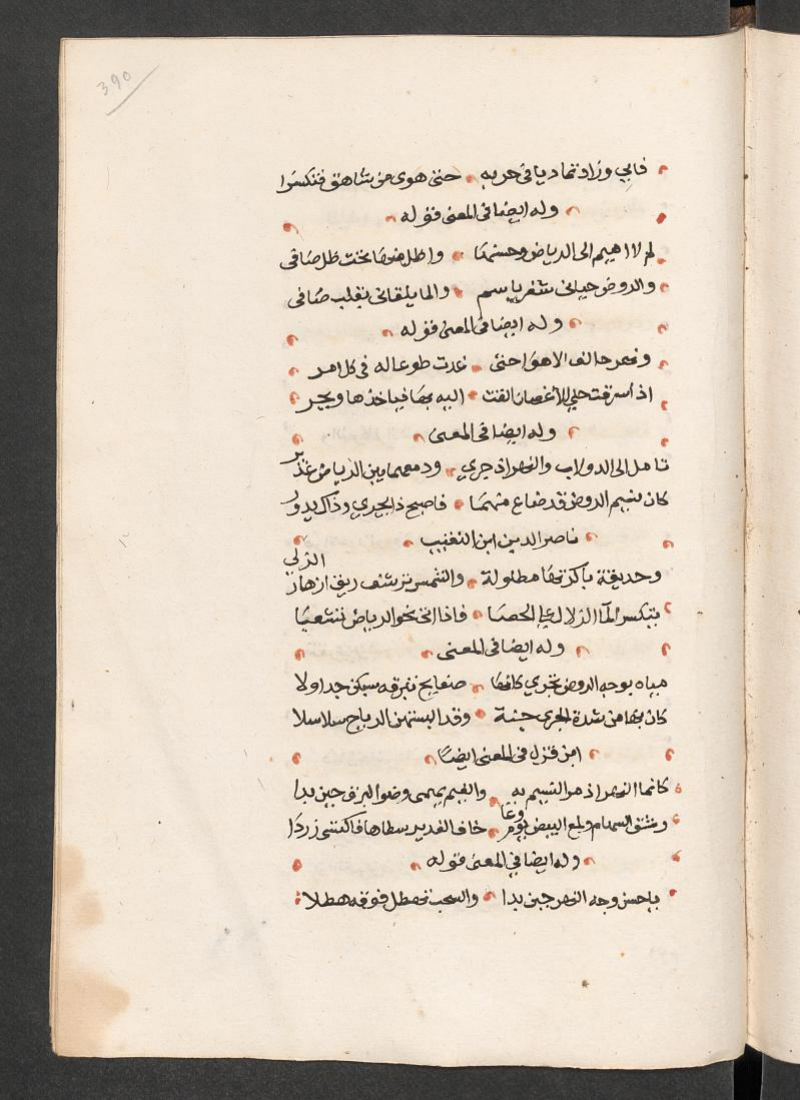 390
فابي وزاد تماديا في جريه حتى هوى من شاهق فتكسرا
وله ايضا في المعنى قوله
لم لا اهيم الى الرياض وحسنها واظل منها تحت ظل ضافي
والروض حياني بثغر باسم والما يلقاني بقلب صافي
وله ايضا في المعنى قوله
ونهر حالف الاهوا حتى غدت طوعا له في كل امر
اذا سرقت حلي الأغصان القت اليه بها فياخذها ويجر
وله ايضا في المعنى
تامل الى الدولاب والنهر اذ جري ودمعهما بين الرياض غدير
كان نسيم الروض قد ضاع منهما فاصبح ذا يجري وذاك يدور
ناصر الدين ابن النقيب
وحديقة باكرتها مطلولة والشمس ترشف ريق ازهار الربي
يتكسر الما الزلال علي الحصا فاذا اتى نحو الرياض تشعبا
وله ايضا في المعنى
مياه بوجه الروض تجري كانها صفايح فضة سبكن جداولا
كان بها من شدة الجري جنة وقد البستهن الرياح سلاسلا
ابن قزل في المعنى ايضا
كانما النهر اذ مر النسيم به والغيم يهمى وضوا البرق حين بدا
رشق السهام ولمع البيض يوم وغا خاف الغدير سطاها فاكتسى زردا
وله ايضا في المعنى قوله
ياحسن وجه النهر حين بدا والسحب تهطل فوقه هطلا